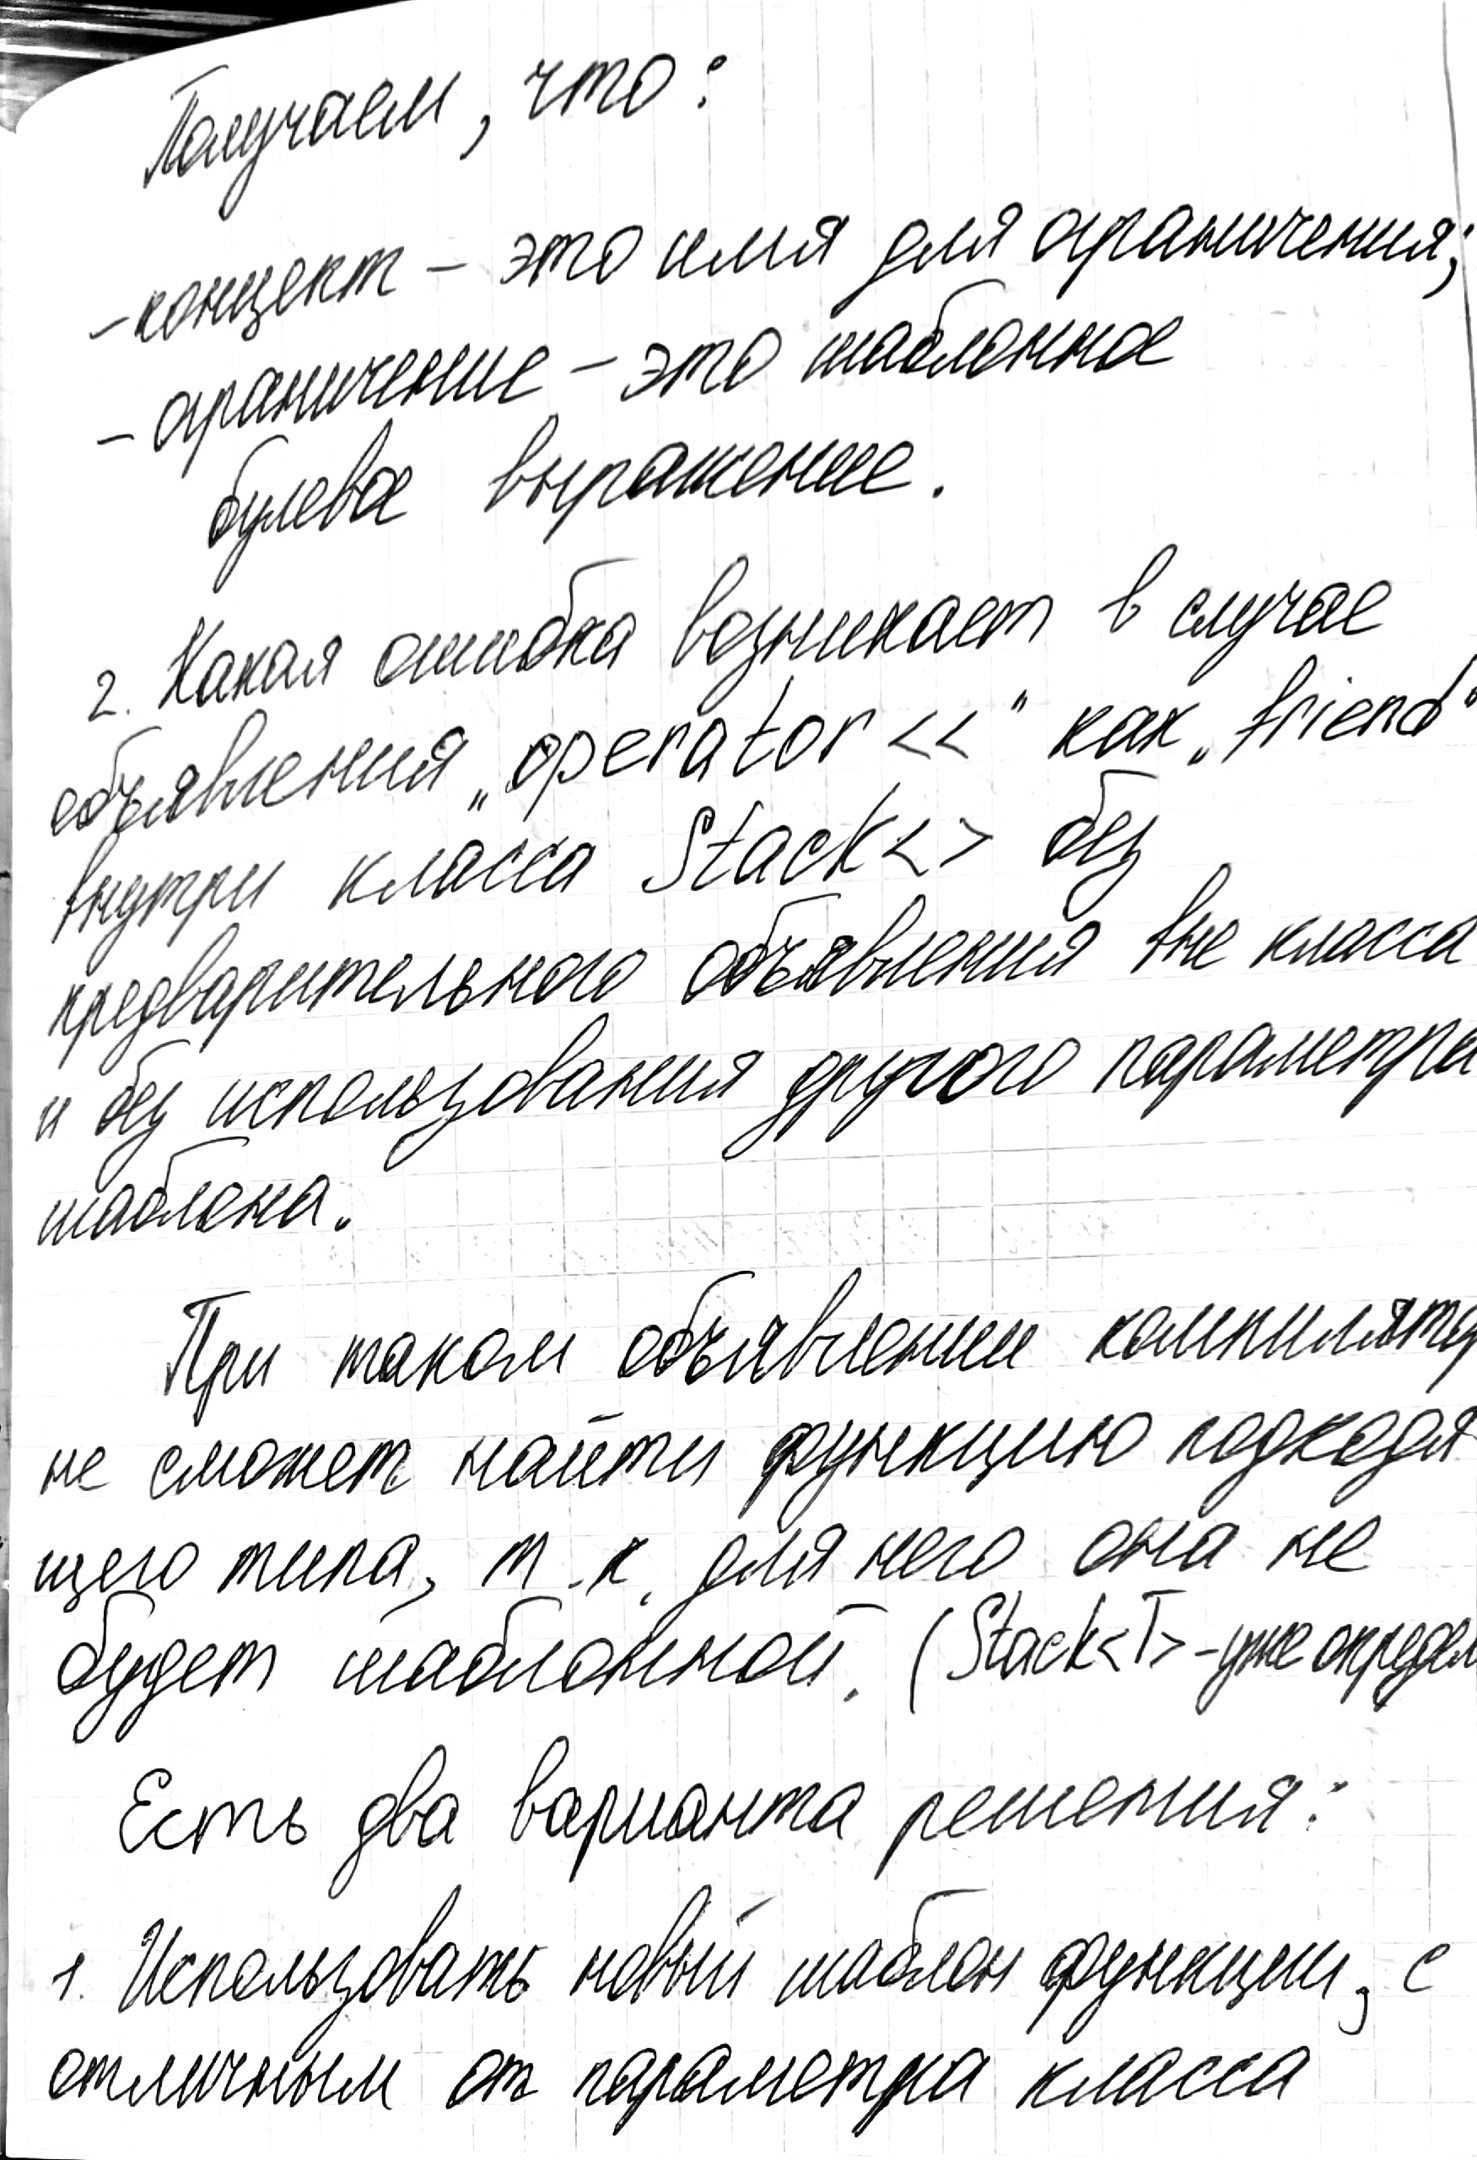 Получаем, что:
- концепт - это имя для ограничения;
- ограничение - это шаблонное
булевое выражение.
2. Какая ошибка возникает в случае
объявления „operator <<" как „friend"
внутри класса Stack<> без
предварительного объявления вне класса
и без использования другого параметра
шаблона.
При таком объявлении компилятор
не сможет найти функцию подходя-
щего типа, т.к. для него она не
будет шаблонной. (Stack<T> - уже определ
Есть два варианта решения:
1. Использовать новый шаблон функции, с
отличным от параметра класса